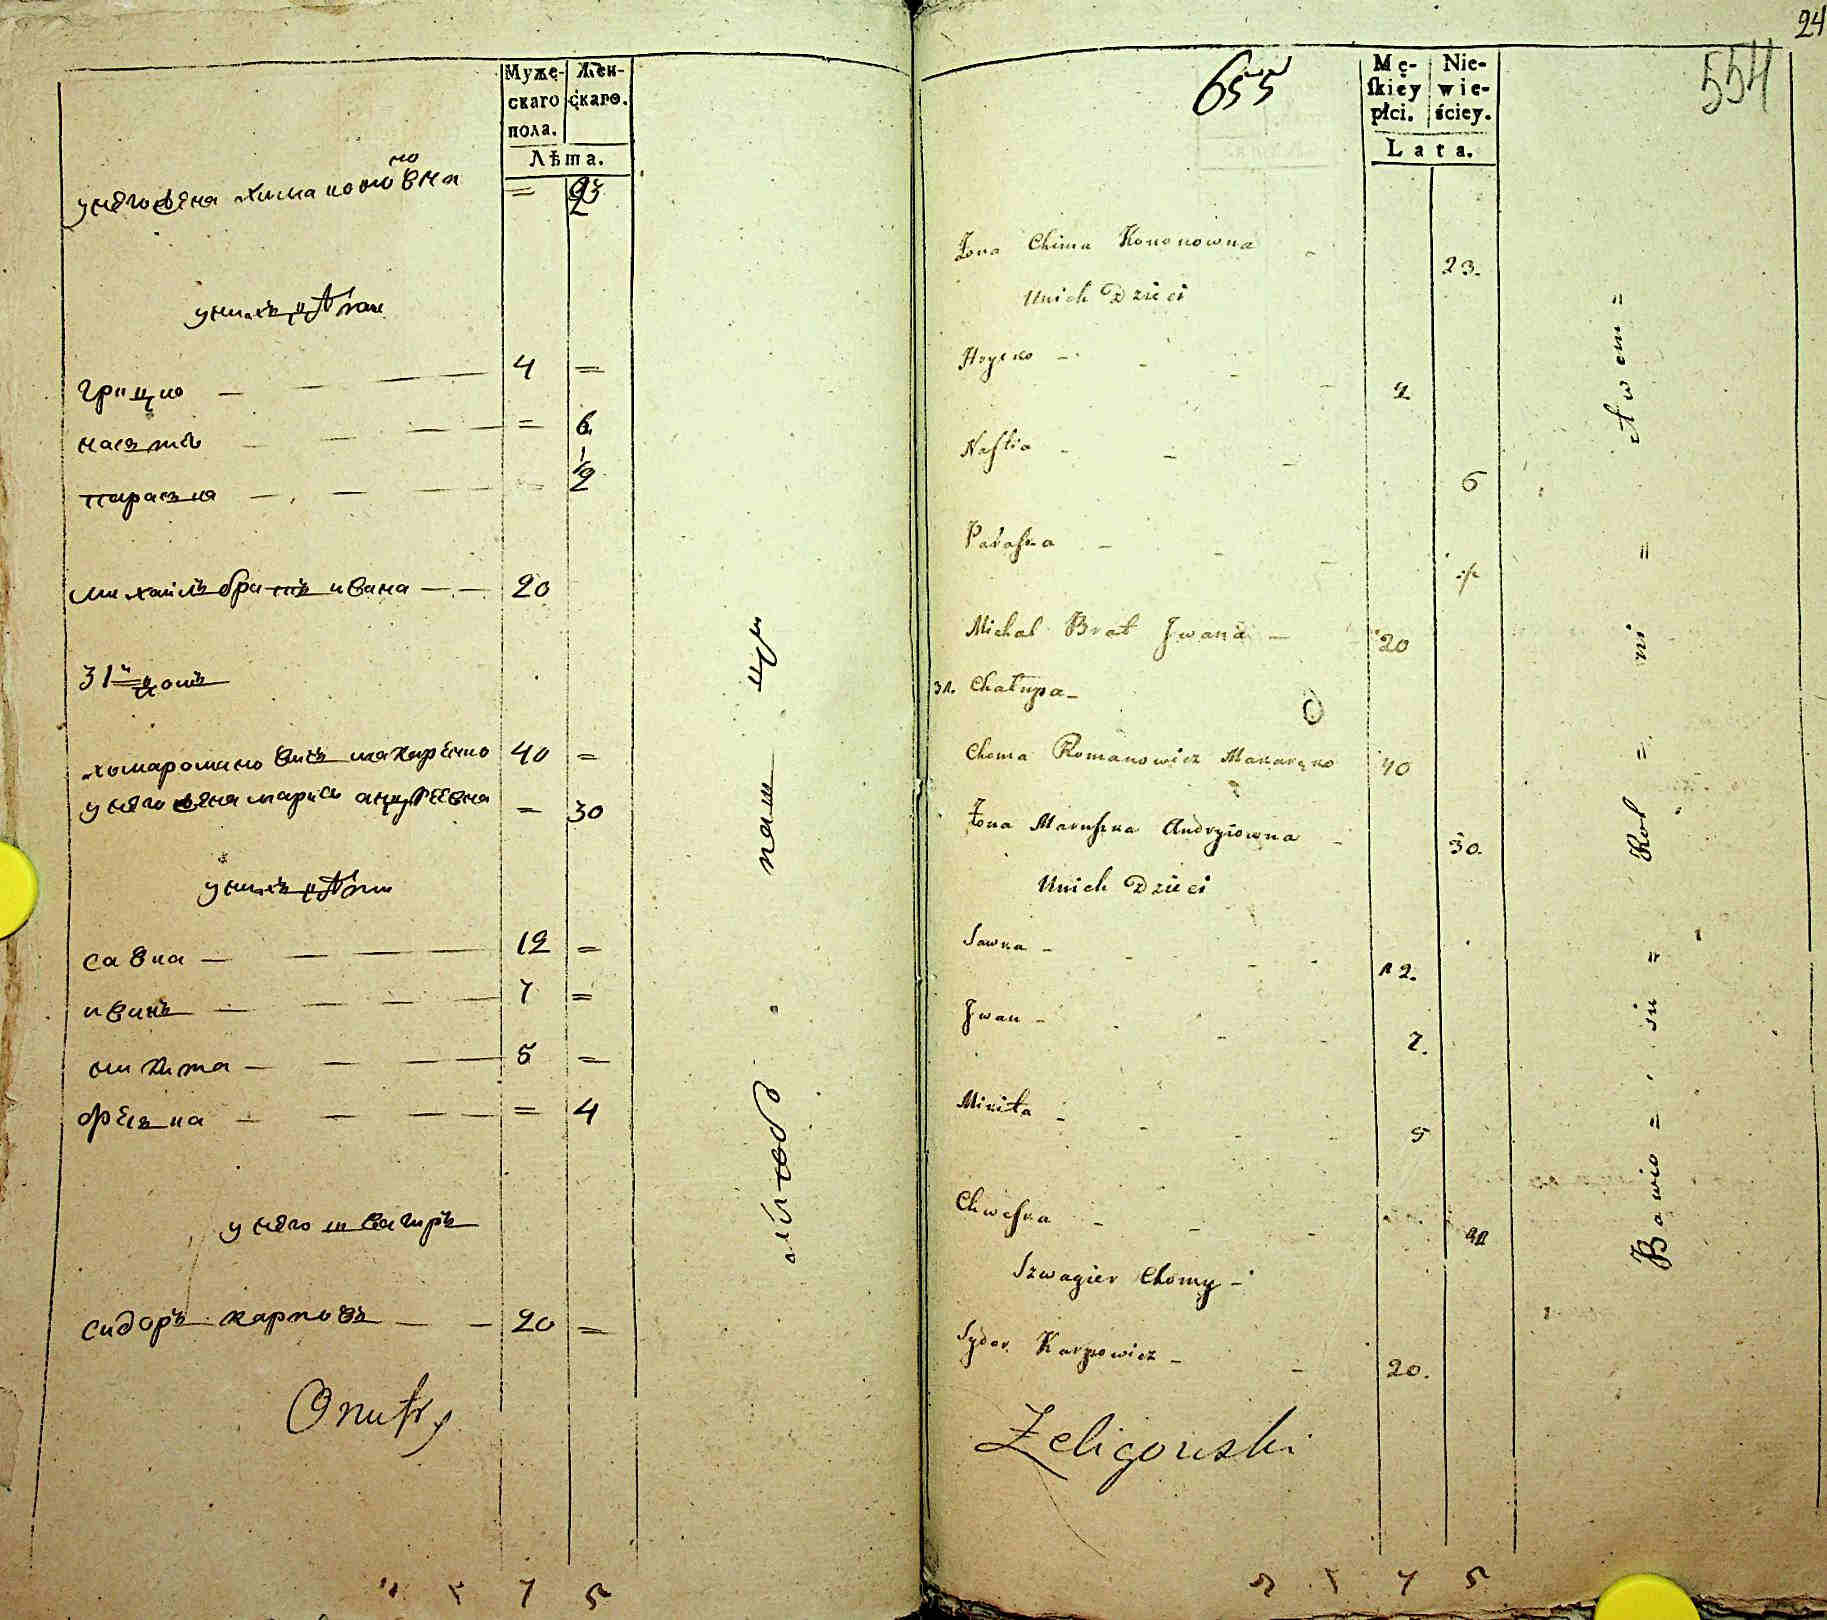 Муже- Жен-
скаго скаго.
пола.
Лѣта.
у него жена хима кононовна = 23
у нихъ дѣти
грицко — 4 =
настя — = 6
параска — = 1/2
михаилъ братъ ивана — 20
31й домъ
хома романовичъ макаренко 40 =
у него жена марья андреевна = 30
у нихъ дѣти
савка — 12 =
иванъ — 7 =
микита — 5 =
феська — = 4
у него швагиръ
сидоръ карповъ — 20 =
Onufry
24
655
554
Mę- Nie-
skiey wie-
płci. ściey.
Lata.
Żona Chima Kononowna - 23.
Unich Dzieci
Hrycko - 4
Nastia - 6
Paraska - 1/2
Michał Brat Jwana - 20
31. Chałupa -
Choma Romanowicz Makarenko 40
Żona Maruszka Andryiowna - 30.
Unich Dzieci
Sawka - 12.
Jwan - 7.
Mikita - 5
Chweśka - 4
Szwagier Chomy -
Sydor Karpowicz - 20.
Żeligowski